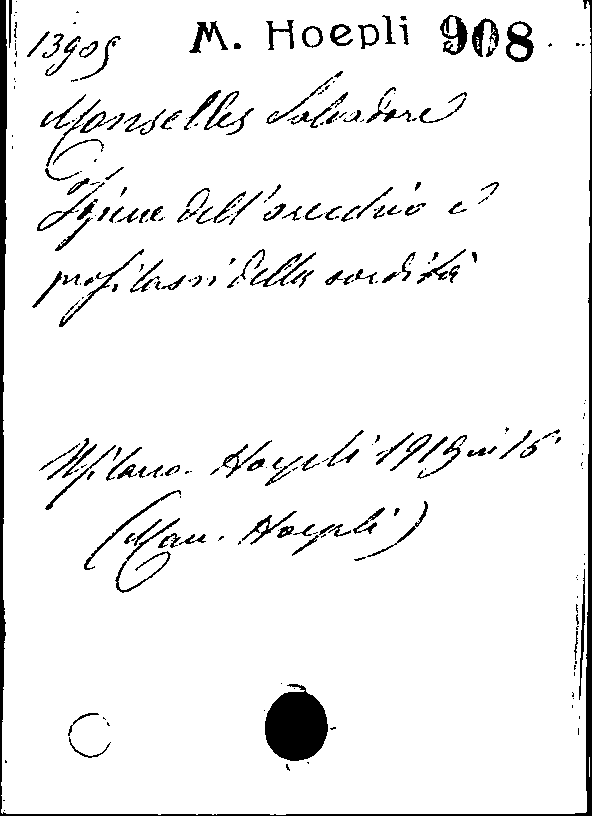 13909 M. Hoepli 908
Monselles Salvadore
Igiene dell'orecchio e
profilassi della sordità
Milano. Hoepli 1919 in 16°
(Man. Hoepli)